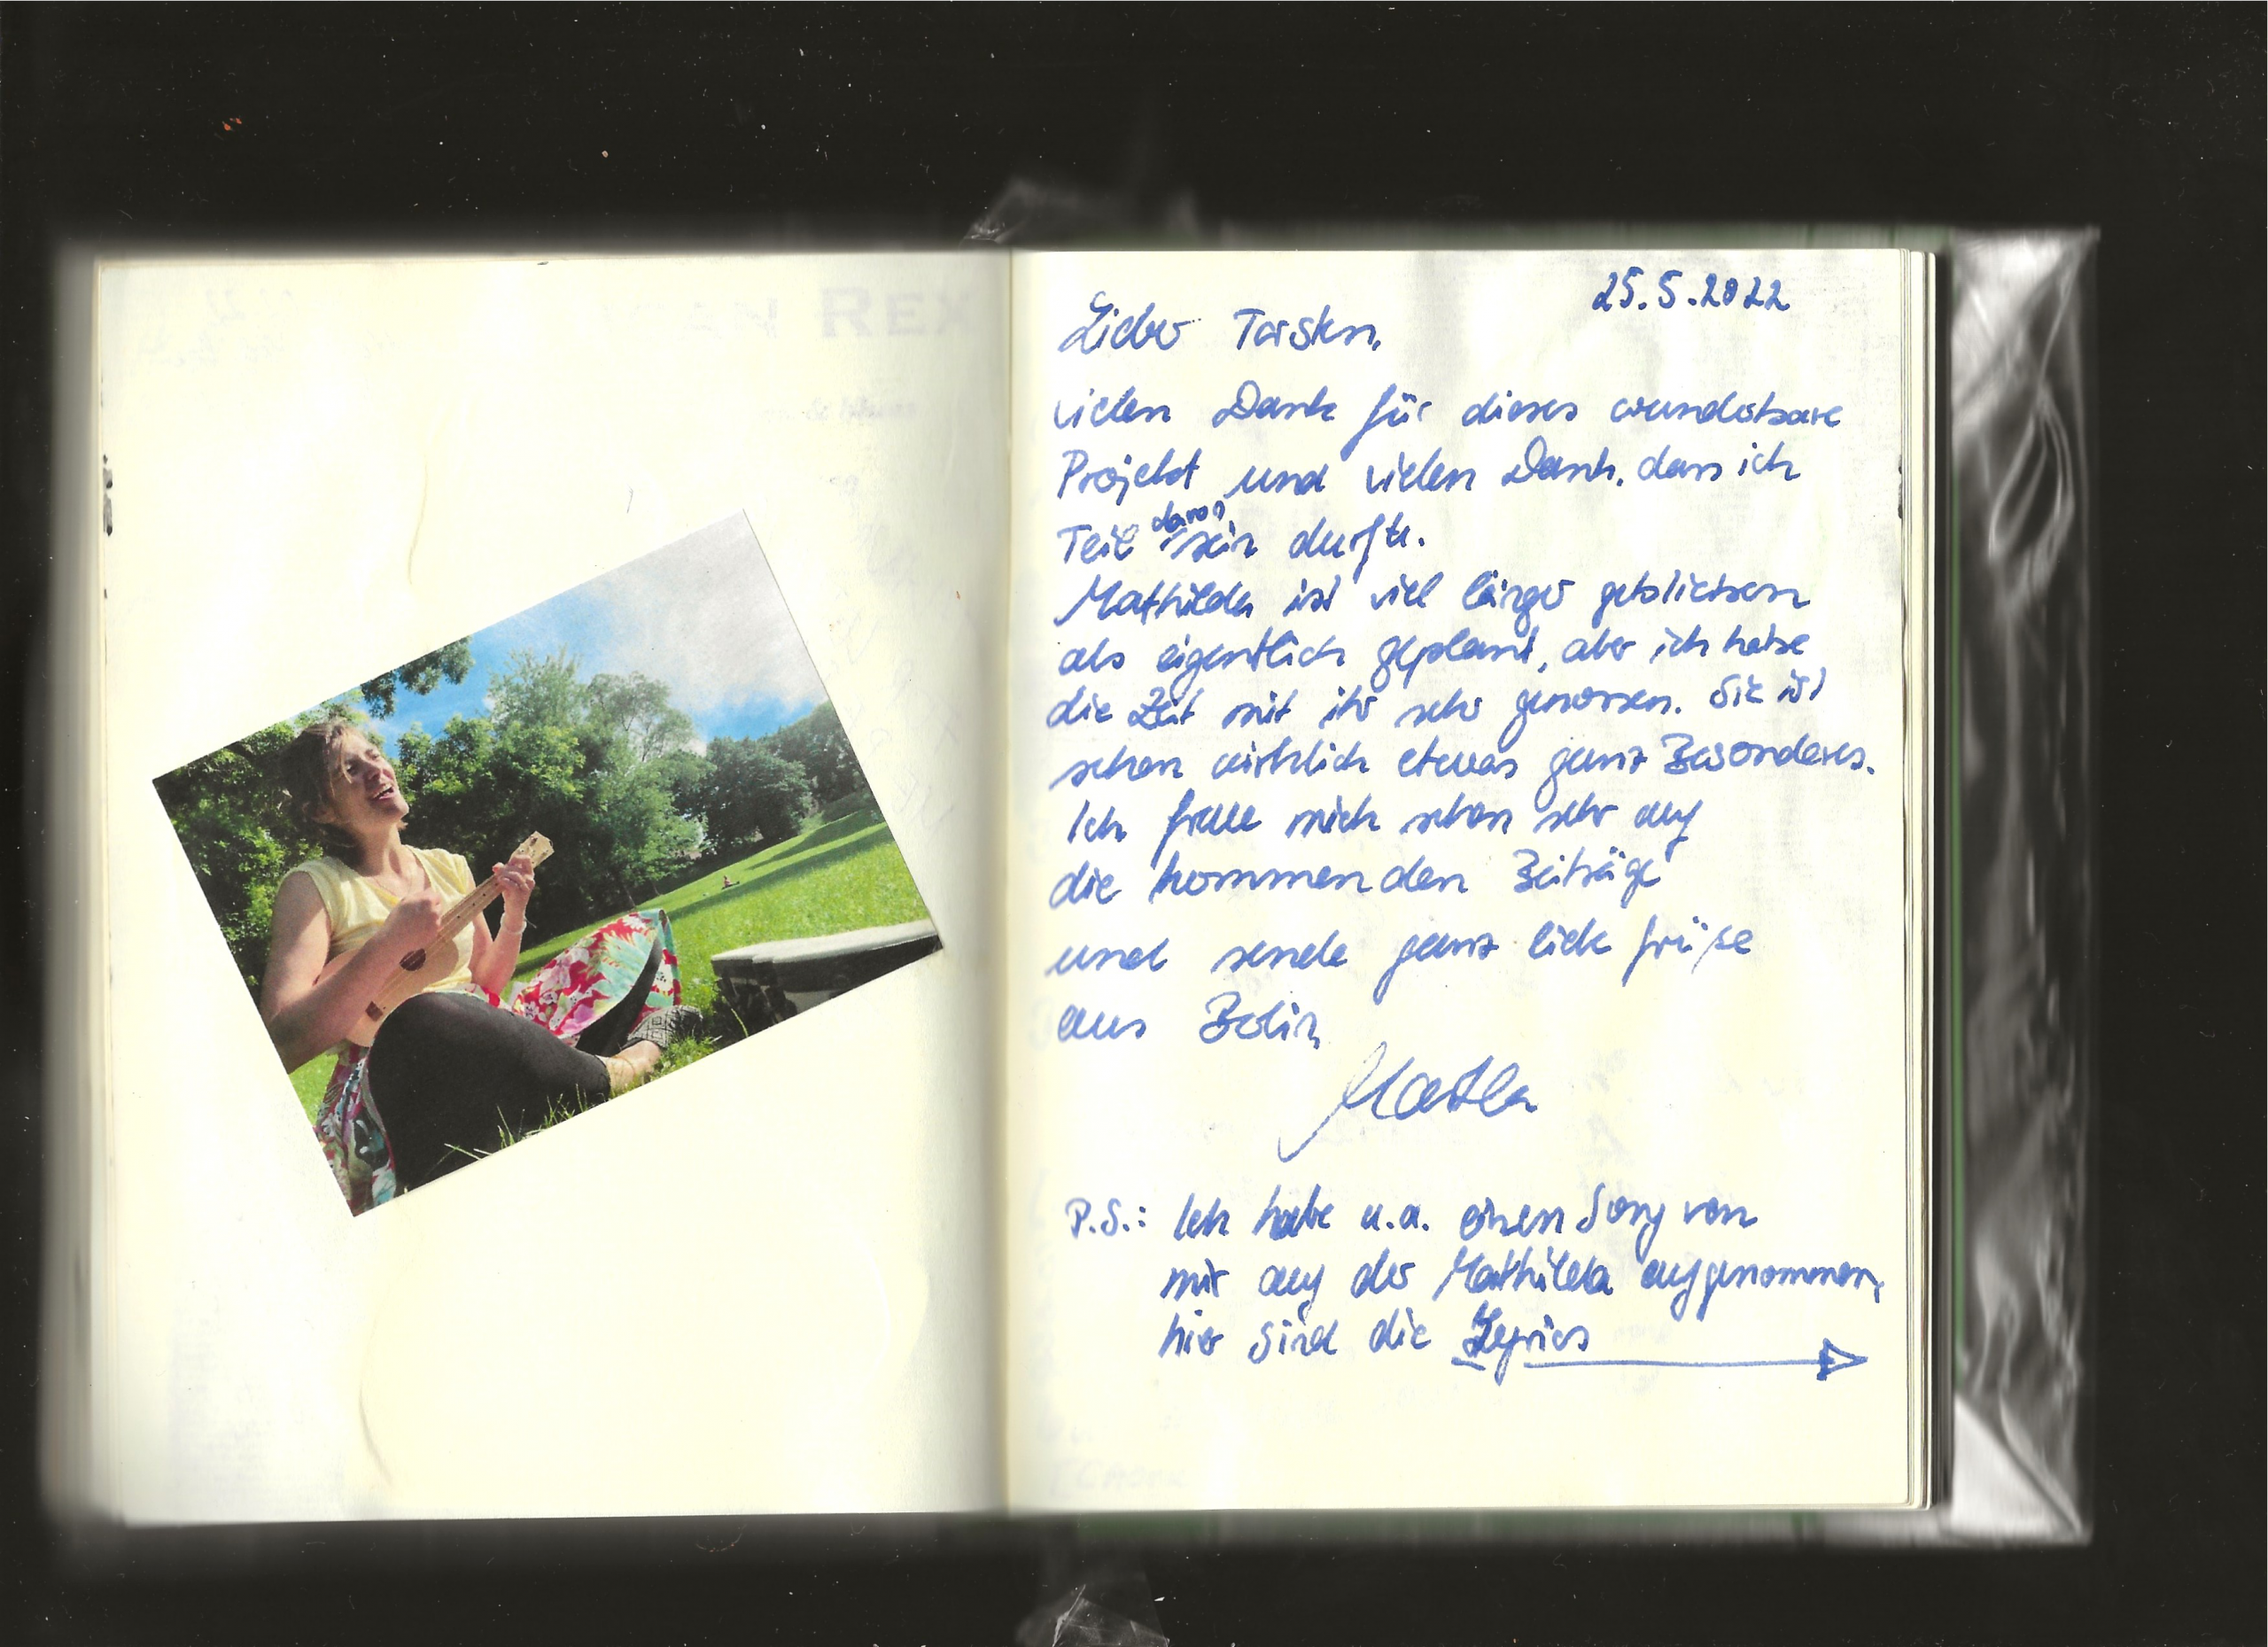 AN REX
25.5.2022
Lieber Torsten,
vielen Dank für dieses wunderbare
Projekt und vielen Dank, dass ich
Teil davon sein durfte.
Mathilda ist viel länger geblieben
als eigentlich geplant, aber ich habe
die Zeit mit ihr sehr genossen. Sie ist
schon wirklich etwas ganz Besonderes.
Ich freue mich schon sehr auf
die kommenden Beiträge
und sende ganz liebe Grüße
aus Berlin
P.S.: Ich habe u.a. einen Song von
mir auf der Mathilda aufgenommen,
hier sind die Lyrics